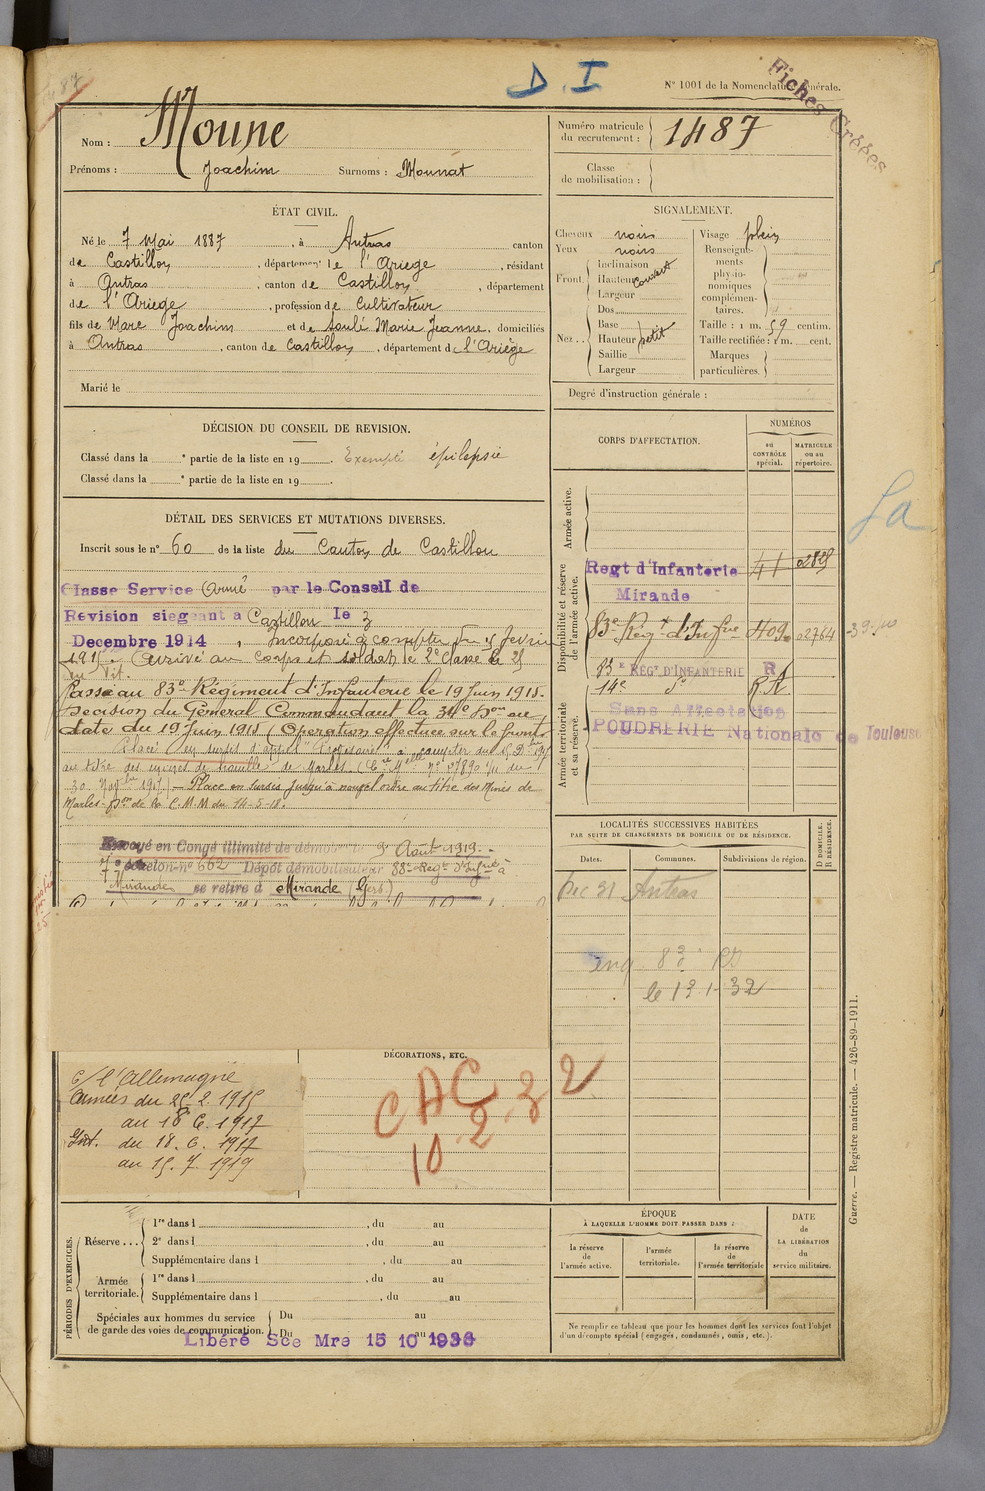 D.I
N° 1001 de la Nomenclature générale.
Fiches Créées
87
Nom : Moune
Prénoms : Joachim Surnoms : Mounat
Numéro matricule du recrutement : 1487
Classe de mobilisation :
ÉTAT CIVIL.
Né le 7 Mai 1887, à Antras canton
de Castillon, département de l'Ariège, résidant
à Antras, canton de Castillon, département
de l'Ariège, profession de Cultivateur
fils de Marc Joachim et de Soulé Marie Jeanne, domiciliés
à Antras, canton de Castillon, département de l'Ariège
Marié le
SIGNALEMENT.
Cheveux noirs
Yeux noirs
Front. Inclinaison
Hauteur couvert
Largeur
Nez.. Dos
Base
Hauteur petit
Saillie
Largeur
Visage plein
Renseignements physionomiques complémentaires.
Taille : 1 m. 59 centim.
Taille rectifiée : 1 m. cent.
Marques particulières.
Degré d'instruction générale :
DÉCISION DU CONSEIL DE REVISION.
Classé dans la e partie de la liste en 19 . Exempté épilepsie
Classé dans la e partie de la liste en 19 .
DÉTAIL DES SERVICES ET MUTATIONS DIVERSES.
Inscrit sous le n° 60 de la liste du Canton de Castillon
Classe Service Armé par le Conseil de
Revision siegeant a Castillon le 3
Decembre 1914, Incorporé à compter du 25 fevrier
1915. Arrivé au corps et soldat de 2e classe le 25
Passé au 83e Régiment d'Infanterie le 19 Juin 1915.
Décision du Général Commandant la 34e Don en
date du 19 Juin 1915 (Opération effectuée sur le front)
Placé en sursis d'appel
au titre des mines de houille de Marles.
30 Novbre 1917.) — Placé en sursis jusqu'à nouvel ordre au titre des Mines de
Marles. Don de la C.M.M du 14-5-18.
Envoyé en Congé illimité de démobilisation 9 Août 1919.
7e échelon n° 662 Dépôt démobilisateur 88e Régt d'Infrie à
Mirande se retire à Mirande (Gers)
CORPS D'AFFECTATION.
NUMÉROS
au CONTRÔLE spécial.
MATRICULE ou au répertoire.
Armée active.
Disponibilité et réserve de l'armée active.
Regt d'Infanterie 41
Mirande
83e Rég t d'Infrie 409 02764
RÉGt D'INFANTERIE R
14e do
Armée territoriale et sa réserve.
Sans Affectation
POUDRERIE Nationale de Toulouse
LOCALITÉS SUCCESSIVES HABITÉES
PAR SUITE DE CHANGEMENTS DE DOMICILE OU DE RÉSIDENCE.
Dates. Communes. Subdivisions de région.
D DOMICILE. R RÉSIDENCE.
Dec 31 Antras
le 13 1- 32
c/ l'Allemagne
Armées du 25.2.1915
au 18 6.1917
Int. du 18.6.1917
au 15.7.1919
DÉCORATIONS, ETC.
CAC
10.2.32
PÉRIODES D'EXERCICES.
Réserve ... 1re dans l , du au
2e dans l , du au
Supplémentaire dans l , du au
Armée territoriale. 1re dans l , du au
Supplémentaire dans l , du au
Spéciales aux hommes du service de garde des voies de communication. Du au
Du au
Libéré Sce Mre 15 10 1936
ÉPOQUE
À LAQUELLE L'HOMME DOIT PASSER DANS :
la réserve de l'armée active.
l'armée territoriale.
la réserve de l'armée territoriale
DATE de LA LIBÉRATION du service militaire.
Ne remplir ce tableau que pour les hommes dont les services font l'objet
d'un décompte spécial (engagés, condamnés, omis, etc.).
Guerre. — Registre matricule. — 426-89-1911.